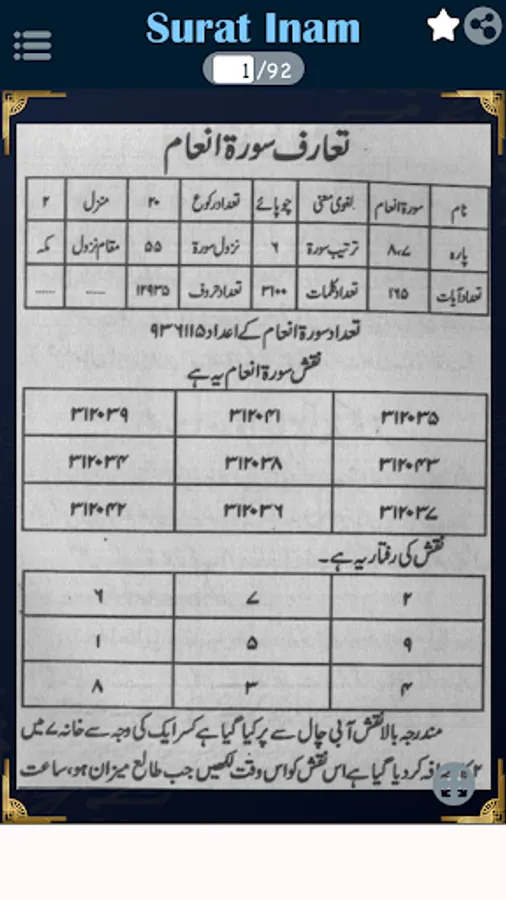 Surat Inam
1/92
تعارف سورۃ انعام
نام سورۃ انعام لغوی معنی چوپائے تعداد رکوع ۲۰ منزل ۲
پارہ ۷،۸ ترتیب سورۃ ۶ نزول سورۃ ۵۵ مقام نزول مکہ
تعداد آیات ۱۶۵ تعداد کلمات ۳۱۰۰ تعداد حروف ۱۲۹۳۵ ..... .....
تعداد سورۃ انعام کے اعداد ۹۳۶۱۱۵
نقش سورۃ انعام یہ ہے
۳۱۲۰۳۵ ۳۱۲۰۴۱ ۳۱۲۰۳۹
۳۱۲۰۴۳ ۳۱۲۰۳۸ ۳۱۲۰۳۴
۳۱۲۰۳۷ ۳۱۲۰۳۶ ۳۱۲۰۴۲
نقش کی رفتار یہ ہے۔
۲ ۷ ۶
۹ ۵ ۱
۴ ۳ ۸
مندرجہ بالا نقش آبی چال سے پر کیا گیا ہے کسر ایک کی وجہ سے خانہ ۷ میں
۲ کر دیا گیا ہے اس نقش کو اس وقت لکھیں جب طالع میزان ہو، ساعت